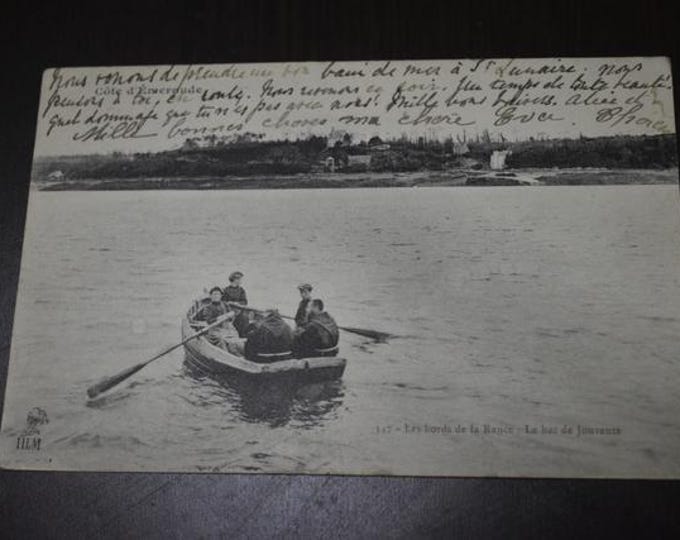 Nous venons de prendre un bon bain de mer à St Lunaire. nous
Côte d'Emeraude
pensons à toi, en route. Nous revenons ce soir. Un temps de toute beauté.
quel dommage que tu n'es pas avec nous! Mille bons baisers. Alice
Mille bonnes choses ma chère
117 - Les bords de la Rance - Le bac de Jouvente
HLM